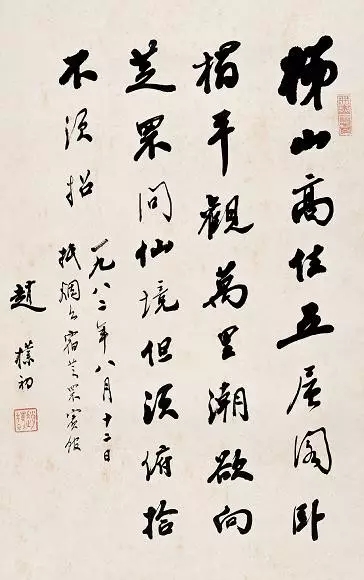 梯山高住五层阁卧
榻平觀萬里潮欲向
芝罘问仙境但须俯拾
不须招
一九八二年八月十二日
抵烟台宿芝罘賓馆
趙樸初